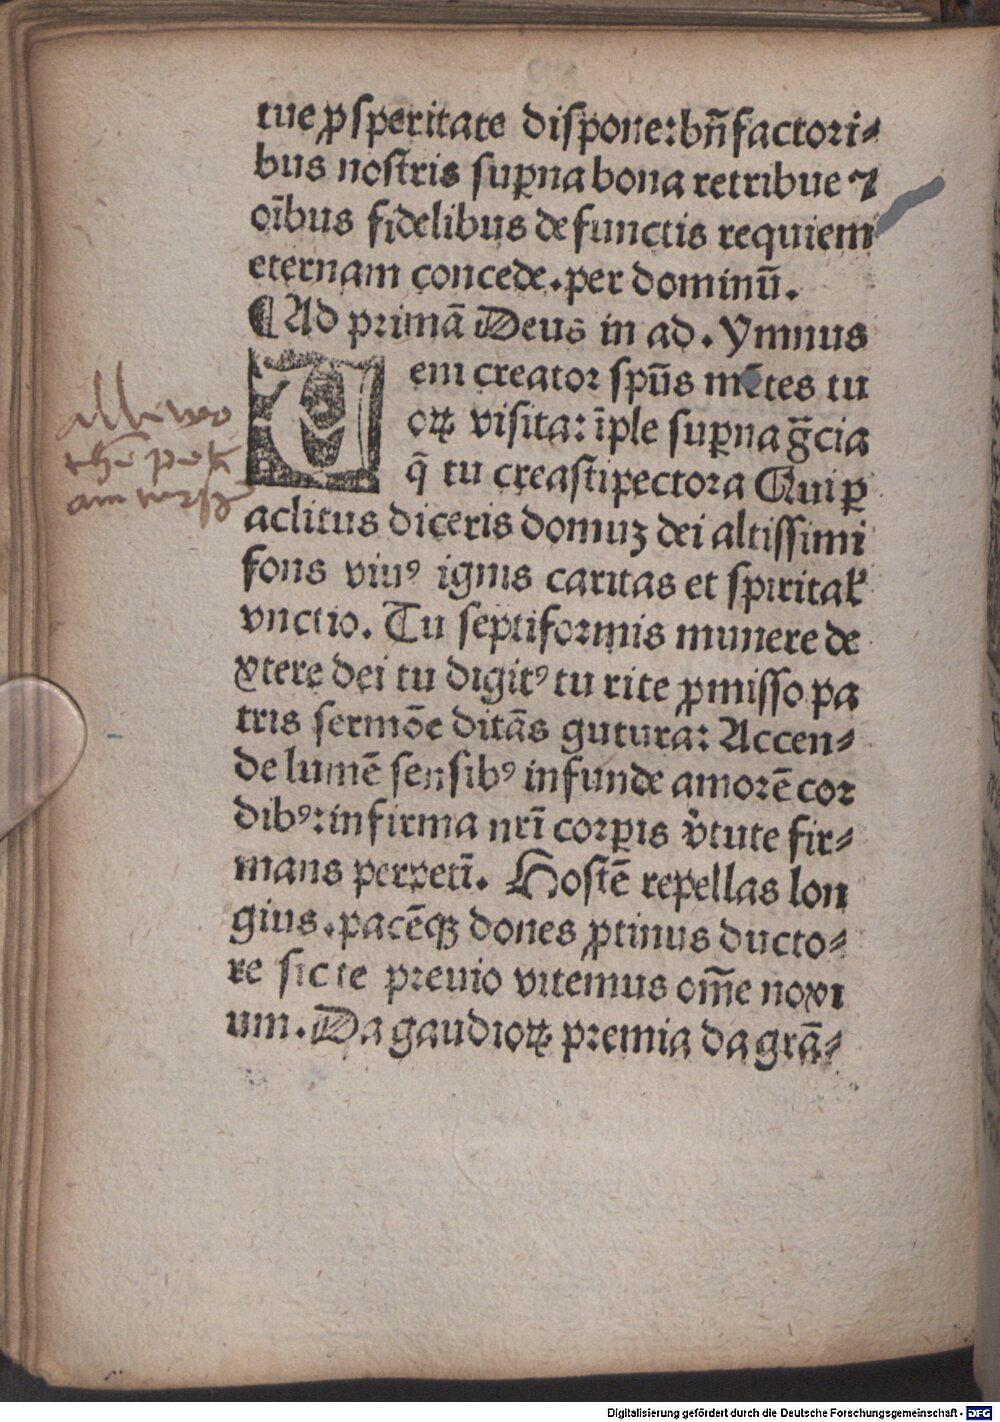 tue ꝓsperitate dispone: bn̄factori⸗
bus nostris suꝑna bona retribue ⁊
oī̄bus fidelibus defunctis requiem
eternam concede. per dominū.
¶ Ad primā Deus in ad. Ymnus
Veni creator spūs mētes tu
oꝝ visita: īple suꝑna gr̄cia
q̄ tu creasti pectora Qui ꝑ
aclitus diceris domuꝫ dei altissimi
fons viuꝰ ignis caritas et spiritaꝉ
vnctio. Tu septiformis munere de
xtere dei tu digitꝰ tu rite ꝓmisso pa
tris sermōe ditās gutura: Accen⸗
de lumē sensibꝰ infunde amorē cor
dibꝰ: infirma nr̄i corꝑis v̓tute fir⸗
mans perpeti. Hostē repellas lon
gius. pacēqꝫ dones ꝓtinus ducto⸗
re sic te preuio vitemus om̄e noxi
um. Da gaudioꝝ premia da grā⸗
Digitalisierung gefördert durch die Deutsche Forschungsgemeinschaft - DFG